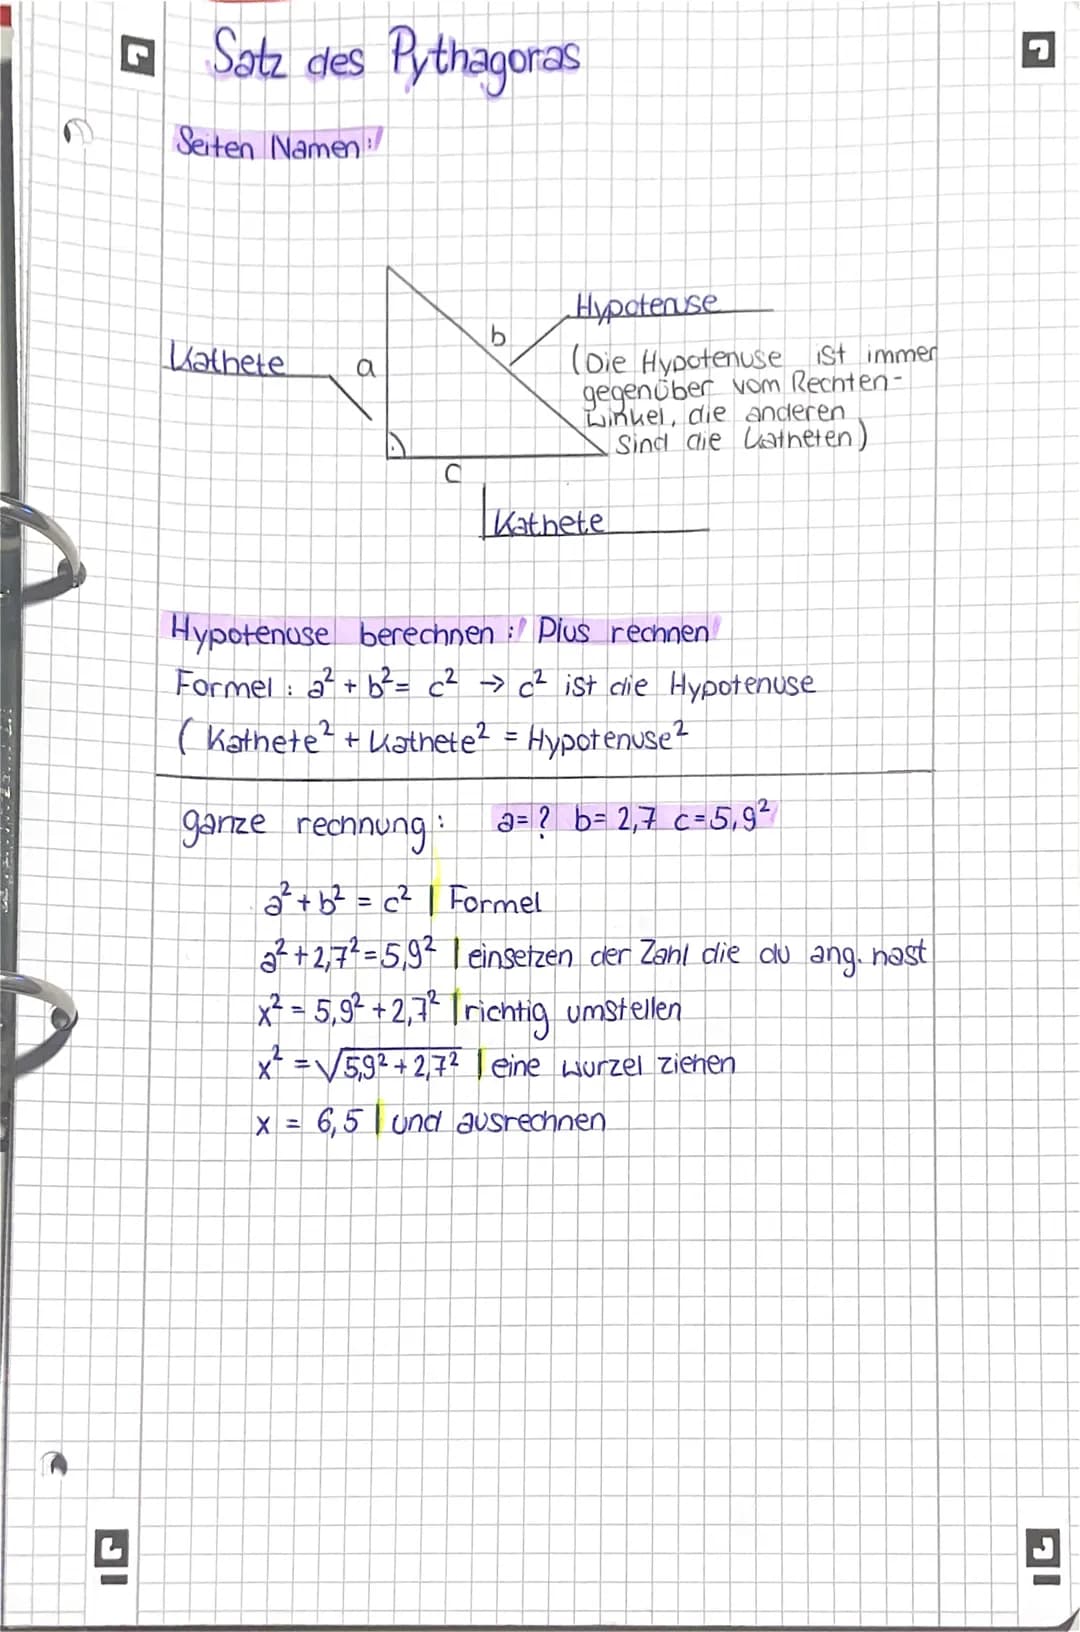 Satz des Pythagoras
Seiten Namen:
Hypotenuse
b
Kathete
a
(Die Hypotenuse ist immer
gegenüber vom Rechten-
Winkel, die anderen
sind die Katheten)
c
Kathete
Hypotenuse berechnen: Plus rechnen
Formel: a² + b² = c² → c² ist die Hypotenuse
( Kathete² + Kathete² = Hypotenuse²
ganze rechnung: a=? b= 2,7 c=5,9²
a² + b² = c² | Formel
a² + 2,7² = 5,9² | einsetzen der Zahl die du ang. hast
x² = 5,9² + 2,7² | richtig umstellen
x² = √5,9² + 2,7² | eine wurzel ziehen
x = 6,5 | und ausrechnen